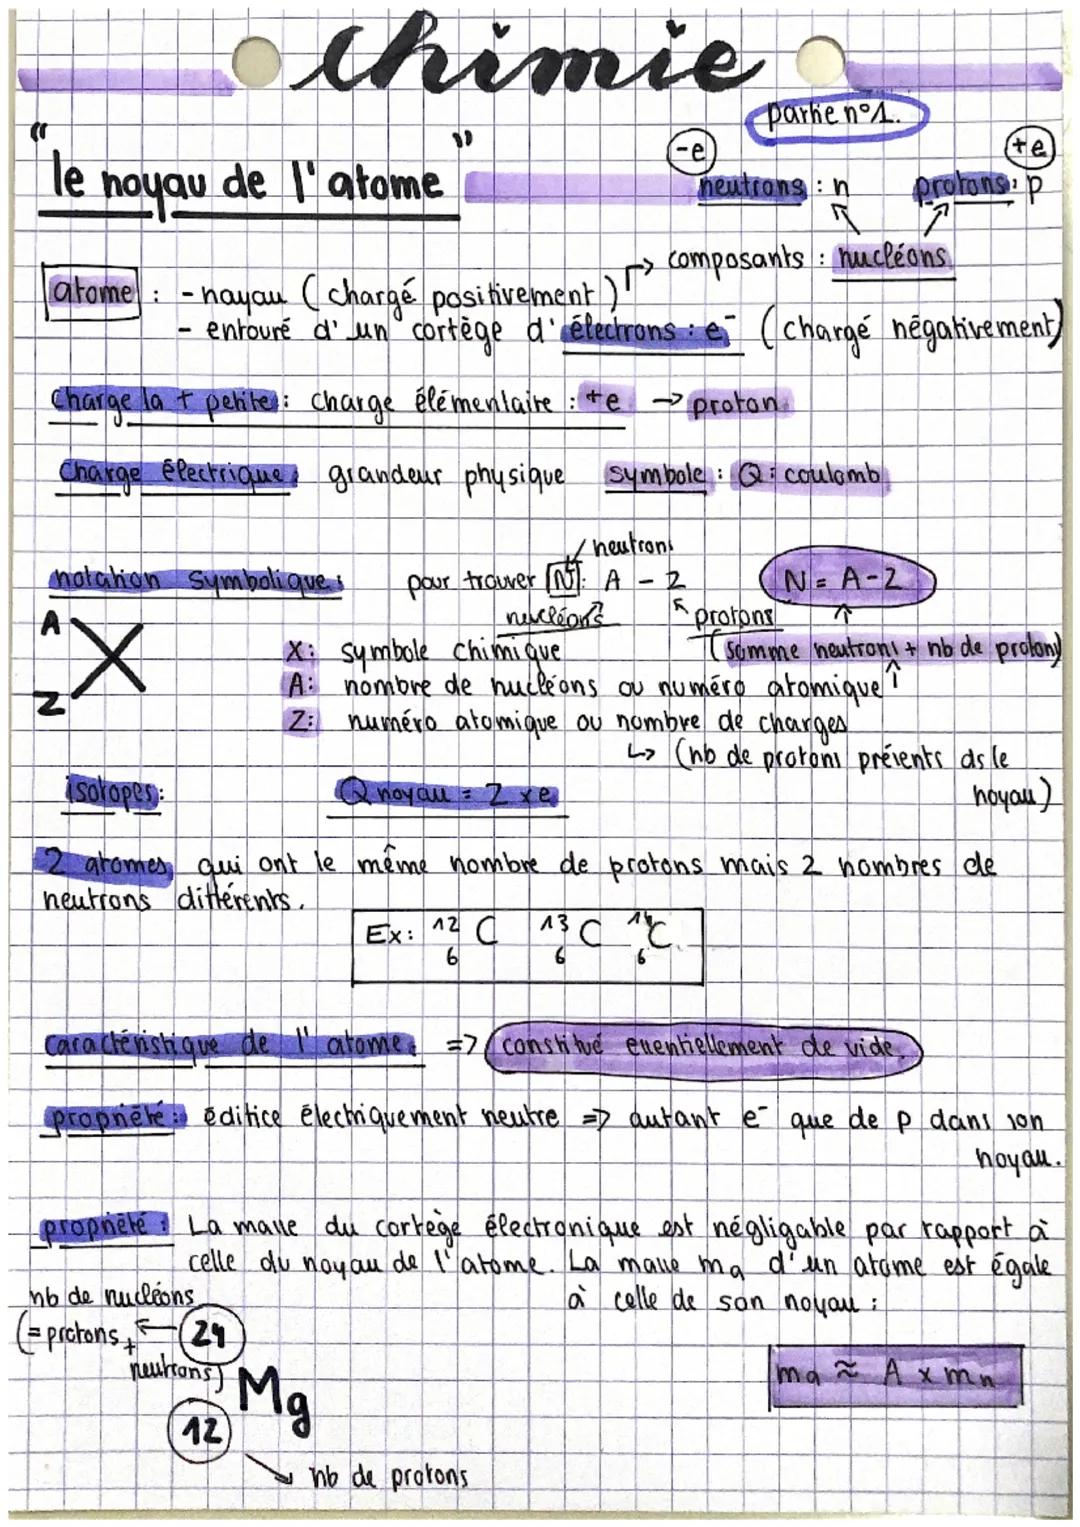 chimie
partie n°1.
"le noyau de l'atome"
-e
+e
neutrons : n
protons : p
composants : nucléons
atome : - noyau (chargé positivement)
- entouré d'un cortège d'électrons : e⁻ (chargé négativement)
charge la + petite : charge élémentaire : +e → proton
Charge électrique : grandeur physique symbole : Q : coulomb
neutrons
notation symbolique : pour trouver N : A - Z
N = A - Z
nucléons
protons
(somme neutrons + nb de protons)
A
X
Z
X : symbole chimique
A : nombre de nucléons ou numéro atomique
Z : numéro atomique ou nombre de charges
↳ (nb de protons présents ds le noyau)
isotopes :
Q noyau = Z x e
2 atomes qui ont le même nombre de protons mais 2 nombres de
neutrons différents.
Ex : ¹²₆C ¹³₆C ¹⁴₆C
caractéristique de l'atome : => constitué essentiellement de vide.
propriété : édifice électriquement neutre => autant e⁻ que de p dans son
noyau.
propriété : La masse du cortège électronique est négligable par rapport à
celle du noyau de l'atome. La masse ma d'un atome est égale
à celle de son noyau :
nb de nucléons
(= protons +
neutrons)
24
Mg
12
nb de protons
ma ≈ A x mn